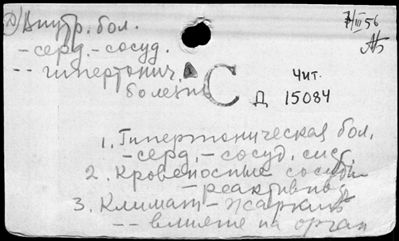 Внутр. бол.
7/III 56
- серд. - сосуд.
-- гипертонич.
болезнь
С
Чит.
Д 15084
1. Гипертоническая бол.
- серд. - сосуд. сис.
2. Кровеносные сосуды
- реактивн
3. Климат - жаркий
-- влияние на орган